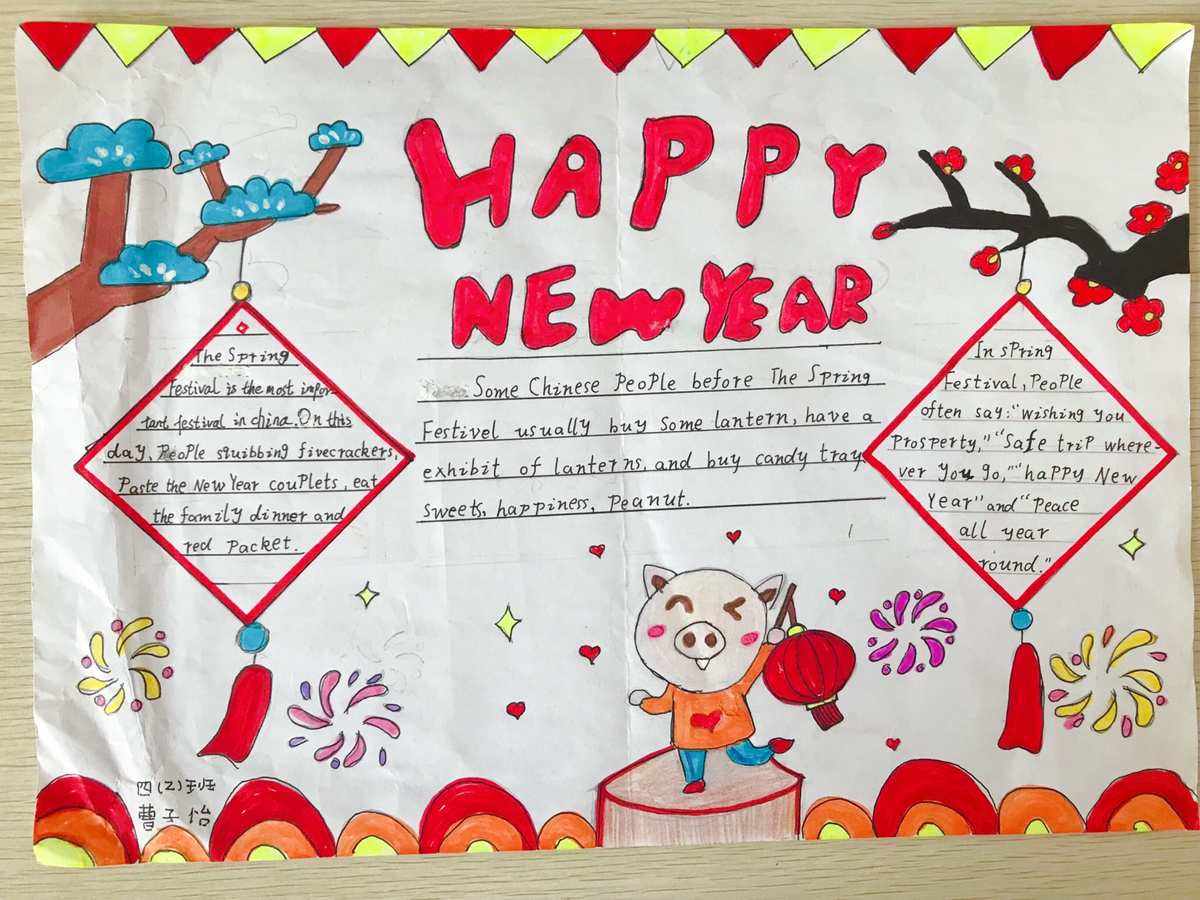 HAPPY
NEW YEAR
The Spring
Festival is the most impor-
tant festival in china. On this
day, People squibbing fivecrackers,
Paste the New Year couplets, eat
the family dinner and
red Packet.
Some Chinese People before The Spring
Festivel usually buy some lantern, have a
exhibit of lanterns, and buy candy tray
sweets, happiness, Peanut.
In sPring
Festival, PeoPle
often say:"wishing you
Prosperty,""Safe triP where-
ver you go,""haPPy New
Year" and "Peace
all year
round."
四(2)班
曹子怡